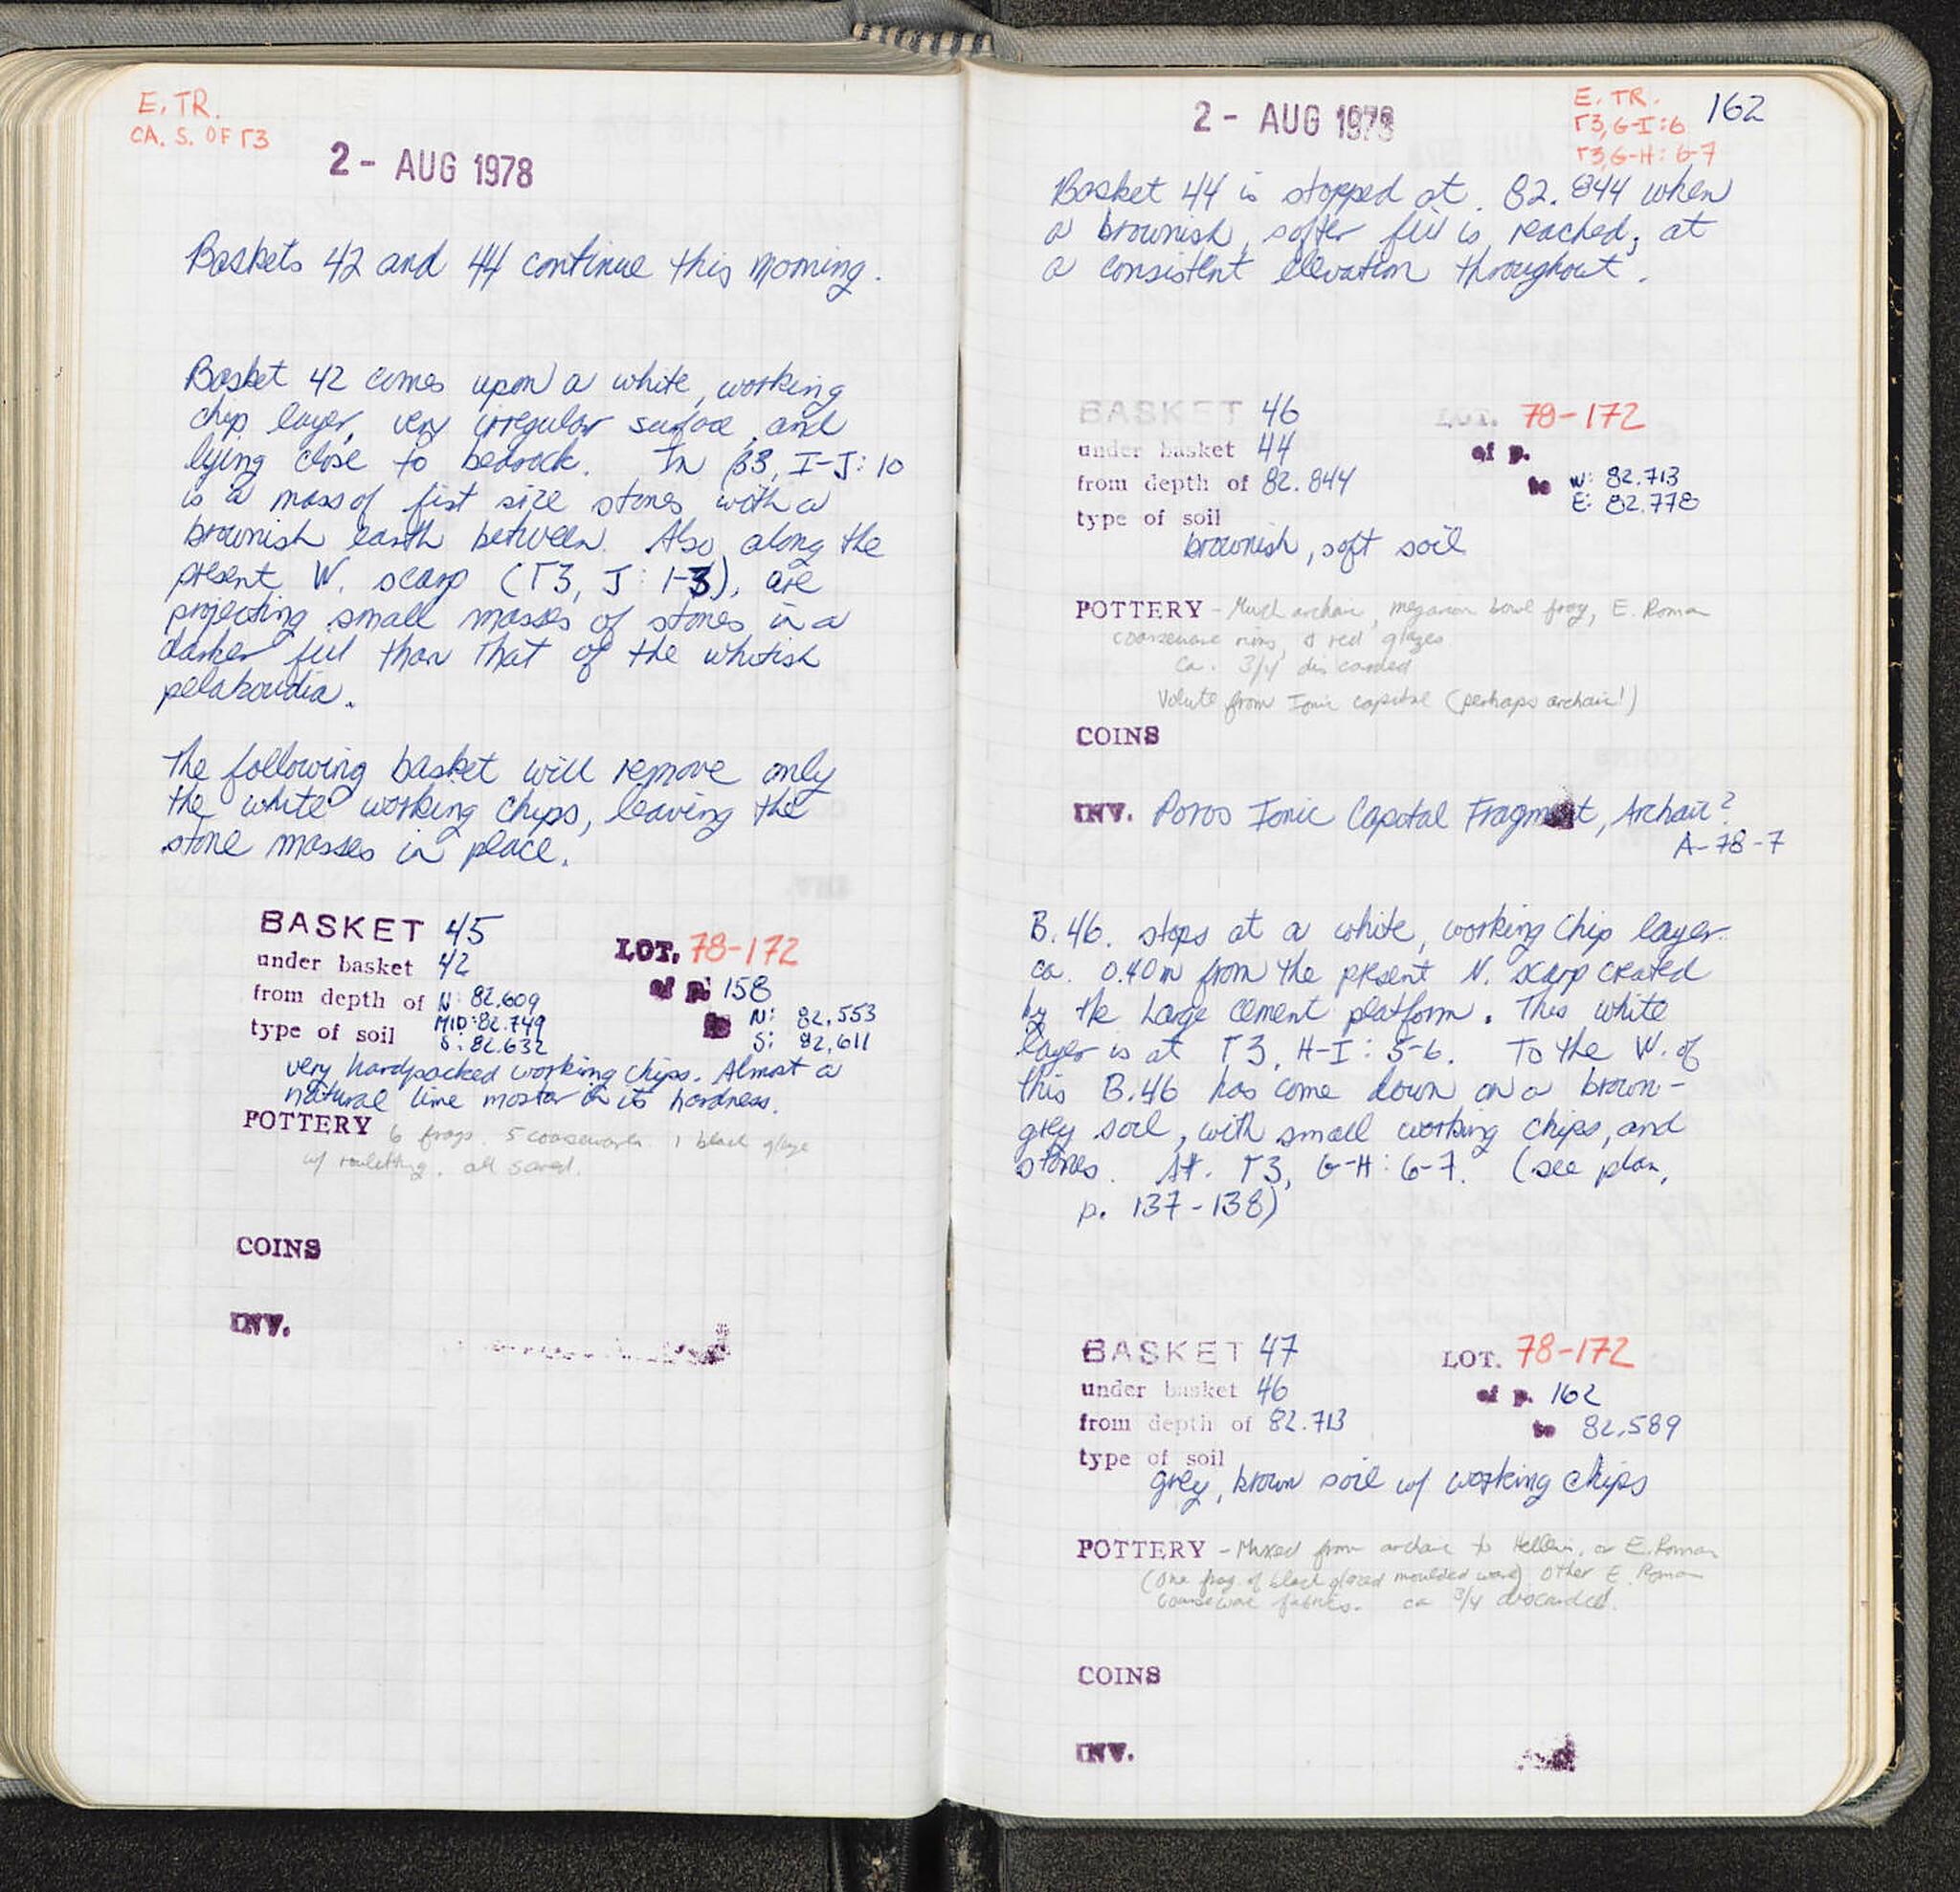 E. TR.
CA. S. OF Γ3
2 - AUG 1978
Baskets 42 and 44 continue this morning.
Basket 42 comes upon a white, working
chip layer, very irregular surface, and
lying close to bedrock. In β3, I-J: 10
is a mass of fist size stones with a
brownish earth between. Also, along the
present W. scarp (Γ3, J: 1-3), are
projecting small masses of stones in a
darker fill than that of the whitish
pelakoudia.
The following basket will remove only
the white working chips, leaving the
stone masses in place.
BASKET 45 LOT. 78-172
under basket 42 of p. 158
from depth of N: 82.609 to N: 82.553
MID: 82.749 S: 82.611
type of soil S: 82.632
very hardpacked working chips. Almost a
natural lime mortar in its hardness.
POTTERY 6 frags. 5 coarseware. 1 black glaze
w/ rouletting. all saved.
COINS
INV.
2 - AUG 1978
E. TR. 162
Γ3, G-I: 6
Γ3, G-H: 6-7
Basket 44 is stopped at 82.844 when
a brownish, softer fill is reached, at
a consistent elevation throughout.
BASKET 46 LOT. 78-172
under basket 44 of p.
from depth of 82.844 to W: 82.713
E: 82.778
type of soil
brownish, soft soil
POTTERY - Much archaic, megarian bowl frag, E. Roman
coarseware rims, & red glazes
Ca. 3/4 discarded
Volute from Ionic capital (perhaps archaic!)
COINS
INV. Poros Ionic Capital Fragment, Archaic?
A-78-7
B.46. stops at a white, working chip layer
ca. 0.40m from the present N. scarp created
by the large cement platform. This white
layer is at Γ3, H-I: 5-6. To the W. of
this B.46 has come down on a brown-
grey soil, with small working chips, and
stones. At. Γ3, G-H: 6-7. (see plan,
p. 137-138)
BASKET 47 LOT. 78-172
under basket 46 of p. 162
from depth of 82.713 to 82.589
type of soil
grey, brown soil w/ working chips
POTTERY - Mixed from archaic to Hellen. or E. Roman
(One frag. of black glazed moulded ware) Other E. Roman
coarseware fabrics. ca 3/4 discarded.
COINS
INV.